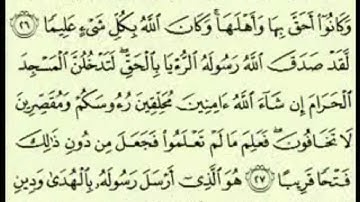 وَكَانُوٓا۟ أَحَقَّ بِهَا وَأَهْلَهَا ۚ وَكَانَ ٱللَّهُ بِكُلِّ شَىْءٍ عَلِيمًا ٢٦
لَّقَدْ صَدَقَ ٱللَّهُ رَسُولَهُ ٱلرُّءْيَا بِٱلْحَقِّ ۖ لَتَدْخُلُنَّ ٱلْمَسْجِدَ
ٱلْحَرَامَ إِن شَآءَ ٱللَّهُ ءَامِنِينَ مُحَلِّقِينَ رُءُوسَكُمْ وَمُقَصِّرِينَ
لَا تَخَافُونَ ۖ فَعَلِمَ مَا لَمْ تَعْلَمُوا۟ فَجَعَلَ مِن دُونِ ذَٰلِكَ
فَتْحًا قَرِيبًا ٢٧ هُوَ ٱلَّذِىٓ أَرْسَلَ رَسُولَهُۥ بِٱلْهُدَىٰ وَدِينِ